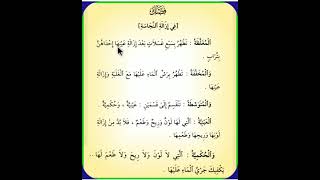 فَصْلٌ
[فِي إِزَالَةِ النَّجَاسَةِ]
الْمُغَلَّظَةُ : تَطْهُرُ بِسَبْعِ غَسَلَاتٍ بَعْدَ إِزَالَةِ عَيْنِهَا إِحْدَاهُنَّ
بِتُرَابٍ .
وَالْمُخَفَّفَةُ : تَطْهُرُ بِرَشِّ الْمَاءِ عَلَيْهَا مَعَ الْغَلَبَةِ وَإِزَالَةِ
عَيْنِهَا .
وَالْمُتَوَسِّطَةُ : تَنْقَسِمُ إِلَى قِسْمَيْنِ : عَيْنِيَّةٍ ، وَحُكْمِيَّةٍ .
الْعَيْنِيَّةُ : الَّتِي لَهَا لَوْنٌ وَرِيحٌ وَطَعْمٌ ، فَلَا بُدَّ مِنْ إِزَالَةِ
لَوْنِهَا وَرِيحِهَا وَطَعْمِهَا .
وَالْحُكْمِيَّةُ : الَّتِي لَا لَوْنَ وَلَا رِيحَ وَلَا طَعْمَ لَهَا ...
يَكْفِيكَ جَرْيُ الْمَاءِ عَلَيْهَا .